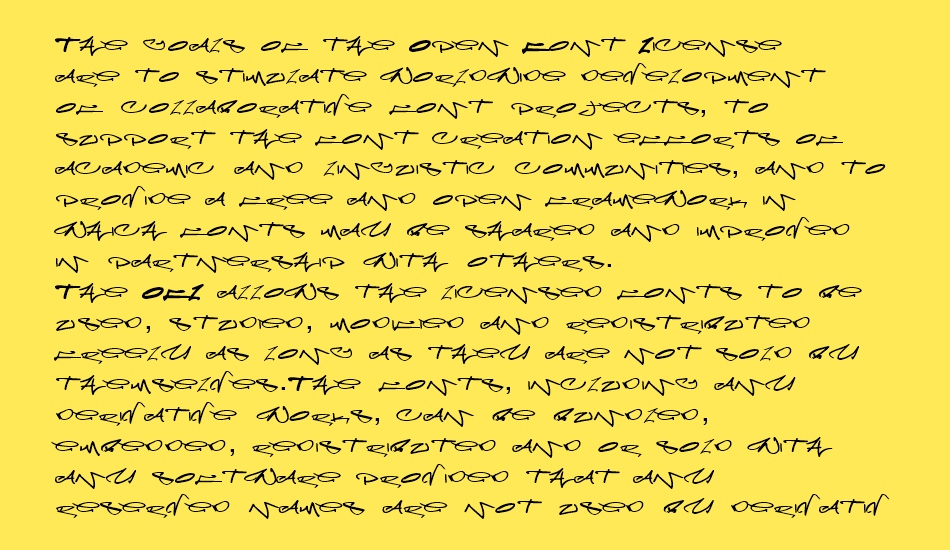 The goals of the Open Font License
are to stimulate worldwide development
of collaborative font projects, to
support the font creation efforts of
academic and linguistic communities, and to
provide a free and open framework in
which fonts may be shared and improved
in partnership with others.
The OFL allows the licensed fonts to be
used, studied, modified and redistributed
freely as long as they are not sold by
themselves.The fonts, including any
derivative works, can be bundled,
embedded, redistributed and or sold with
any software provided that any
reserved names are not used by derivativ